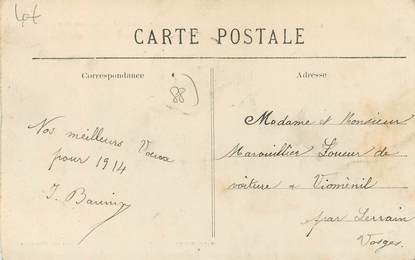 CARTE POSTALE
Correspondance
Adresse
88
Nos meilleurs Voeux
pour 1914
Madame et Monsieur
Marouillier Loueur de
voiture à Vioménil
par Lerrain
Vosges.